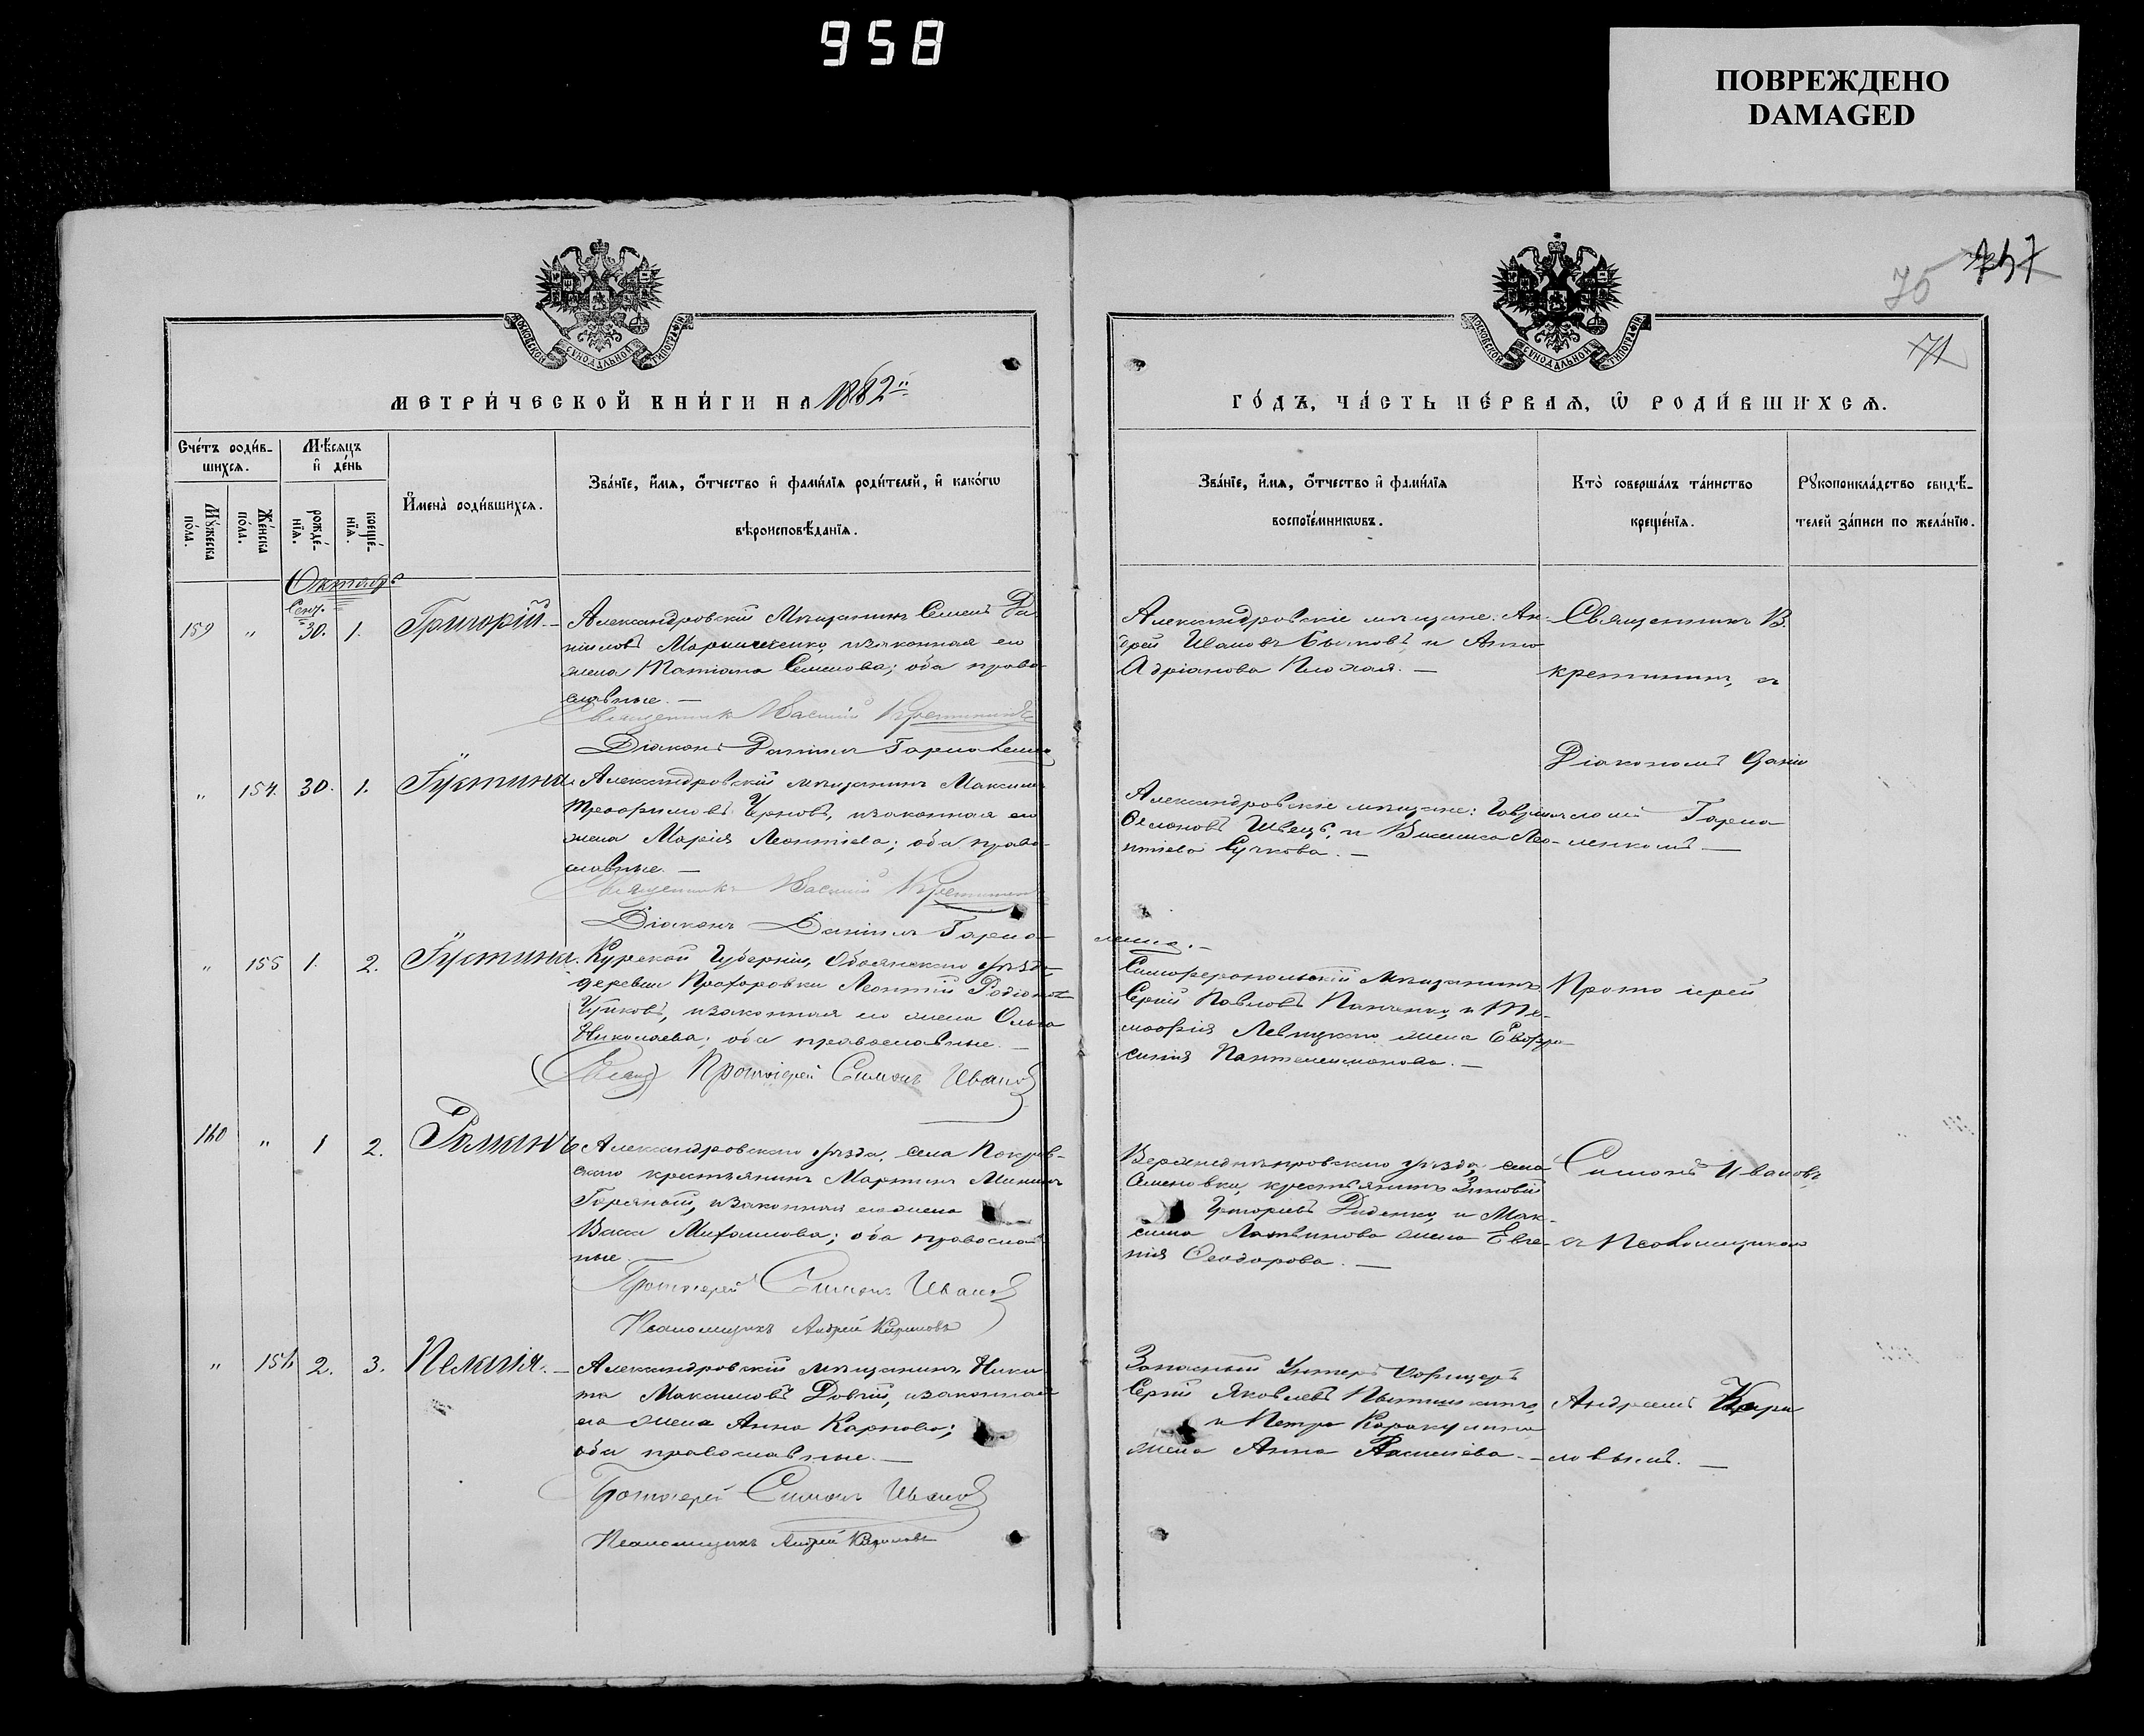 958
ПОВРЕЖДЕНО
DAMAGED
757
75
71
МОСКОВСКОЙ СѴНОДАЛЬНОЙ ТИПОГРАФІИ
МОСКОВСКОЙ СѴНОДАЛЬНОЙ ТИПОГРАФІИ
МЕТРИ́ЧЕСКОЙ КНИ́ГИ НА 1882й
ГО́ДЪ, ЧА́СТЬ ПЕ́РВАѦ, Ѡ҆ РОДИ́ВШИХСѦ.
Сче́тъ роди́в-
шихсѧ.
Мѣ́сѧцъ
и҆ де́нь
Мꙋ́жеска
по́ла.
Же́нска
по́ла.
рожде́-
нїѧ.
креще́-
нїѧ.
И҆мена̀ роди́вшихсѧ.
Зва́нїе, и҆́мѧ, ѻ҆́тчество и҆ фами́лїѧ роди́телей, и҆ како́гѡ
вѣроисповѣ́данїѧ.
Зва́нїе, и҆́мѧ, ѻ҆́тчество и҆ фами́лїѧ
воспрїе́мникѡвъ.
Кто̀ соверша́лъ та́инство
креще́нїѧ.
Рꙋкоприкла́дство свидѣ́-
телей за́писи по жела́нїю.
Октябрь
Сент.
159 " 30. 1. Григорій. – Александровскій Мѣщанинъ Семенъ Да-
ниловъ Марынченко, и законная его
жена Татіана Семенова; оба право-
славные. —
Священникъ Василій Крестининъ
Діаконъ Даніилъ Гармоленко
Александровскіе мѣщане: Ан-
дрей Ивановъ Быковъ, и Анна
Адріанова Плохая. —
Священникъ В.
Крестининъ, съ
Діакономъ Даніи-
ломъ Гармо-
ленкомъ —
" 154. 30. 1. Іустина. Александровскій мѣщанинъ Максимъ
Трофимовъ Черновъ, и законная его
жена Марія Леонтіева; оба право-
славные. —
Священникъ Василій Крестининъ
Діаконъ Даніилъ Гармо-
ленко. —
Александровскіе мѣщане: Гавріилъ
Швецъ, и Василиса Лео-
нтіева Сучкова. —
" 155 1. 2. Іустина. Курской Губерніи, Обоянскаго уѣзда,
деревни Прохоровки Леонтій Родіоновъ
Чуйковъ, и законная его жена Ольга
Николаева; оба православные. —
Протоіерей Симонъ Ивановъ
Симферопольскій Мѣщанинъ
Сергій Павловъ Панченко, и Ти-
моѳея Левицкаго жена Евфро-
синія Пантелеимонова. —
Протоіерей
Симонъ Ивановъ,
съ Псаломщикомъ
Андреемъ Кари-
ловымъ. —
160 " 1 2. Романъ Александровскаго уѣзда, села Покров-
скаго крестьянинъ Мартинъ Мининъ
Горяной, и законная его жена
Васса Михаилова; оба православ-
ные. —
Протоіерей Симонъ Ивановъ
Псаломщикъ Андрей Кариловъ
Верхнеднѣпровскаго уѣзда, села
Семеновки, крестьянинъ Зиновій
Григорьевъ Диденко, и Мак-
сима Латвинова жена Евге-
нія Ѳеодорова. —
" 156 2. 3. Пелагія. – Александровскій мѣщанинъ Ники-
та Максимовъ Довгій, и законная
его жена Анна Карпова;
оба православные. —
Протоіерей Симонъ Ивановъ
Псаломщикъ Андрей Кариловъ
Запасный Унтеръ Офицеръ
Сергій Яковлевъ
и Петра Каракулина
жена Анна Васильева. —